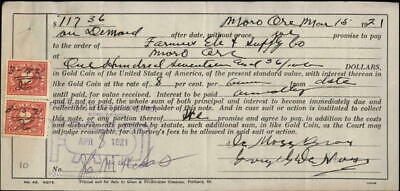 $117 36 Moro Ore Mar 15 1921
on Demand after date, without grace, we promise to pay to
the order of Farmers Ele & Supply Co
at Moro Ore
One Hundred Seventeen and 36/100 DOLLARS,
in Gold Coin of the United States of America, of the present standard value, with interest thereon in like
Gold Coin at the rate of 8 per cent. per annum from date
until paid, interest to be paid annually and if not so
paid, the whole sum of both principal and interest to become immediately due and
collectible, at the option of the holder of this note. And in case suit or action is instituted to collect
this note, or any portion thereof, we promise
to pay, in addition to the costs and disbursements provided by statute, such additional sum, in like Gold Coin, as the Court
may adjudge reasonable, for Attorney's fees to be allowed in said suit or action.
APR 1921
De Moss Bros
No.
10